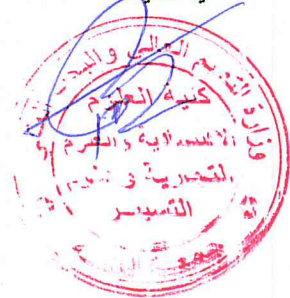 وزارة التعليم العالي والبحث
كلية العلوم
الاقتصادية والعلوم
التجارية وعلوم
التسيير